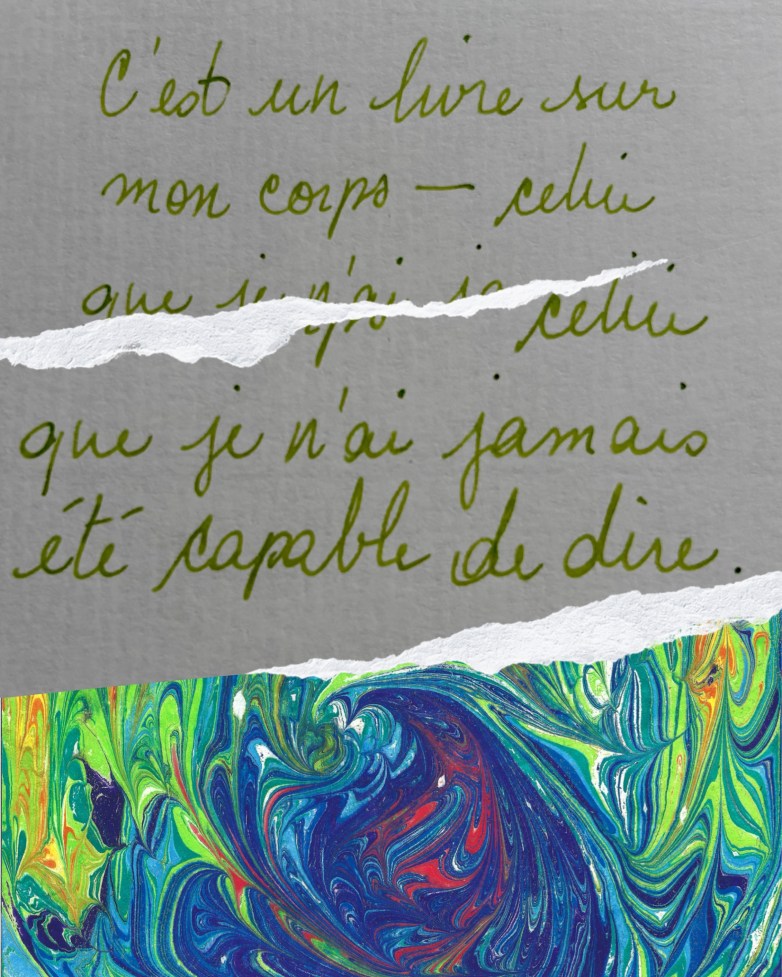 C'est un livre sur
mon corps — celui
que je n'ai ja
celui
que je n'ai jamais
été capable de dire.